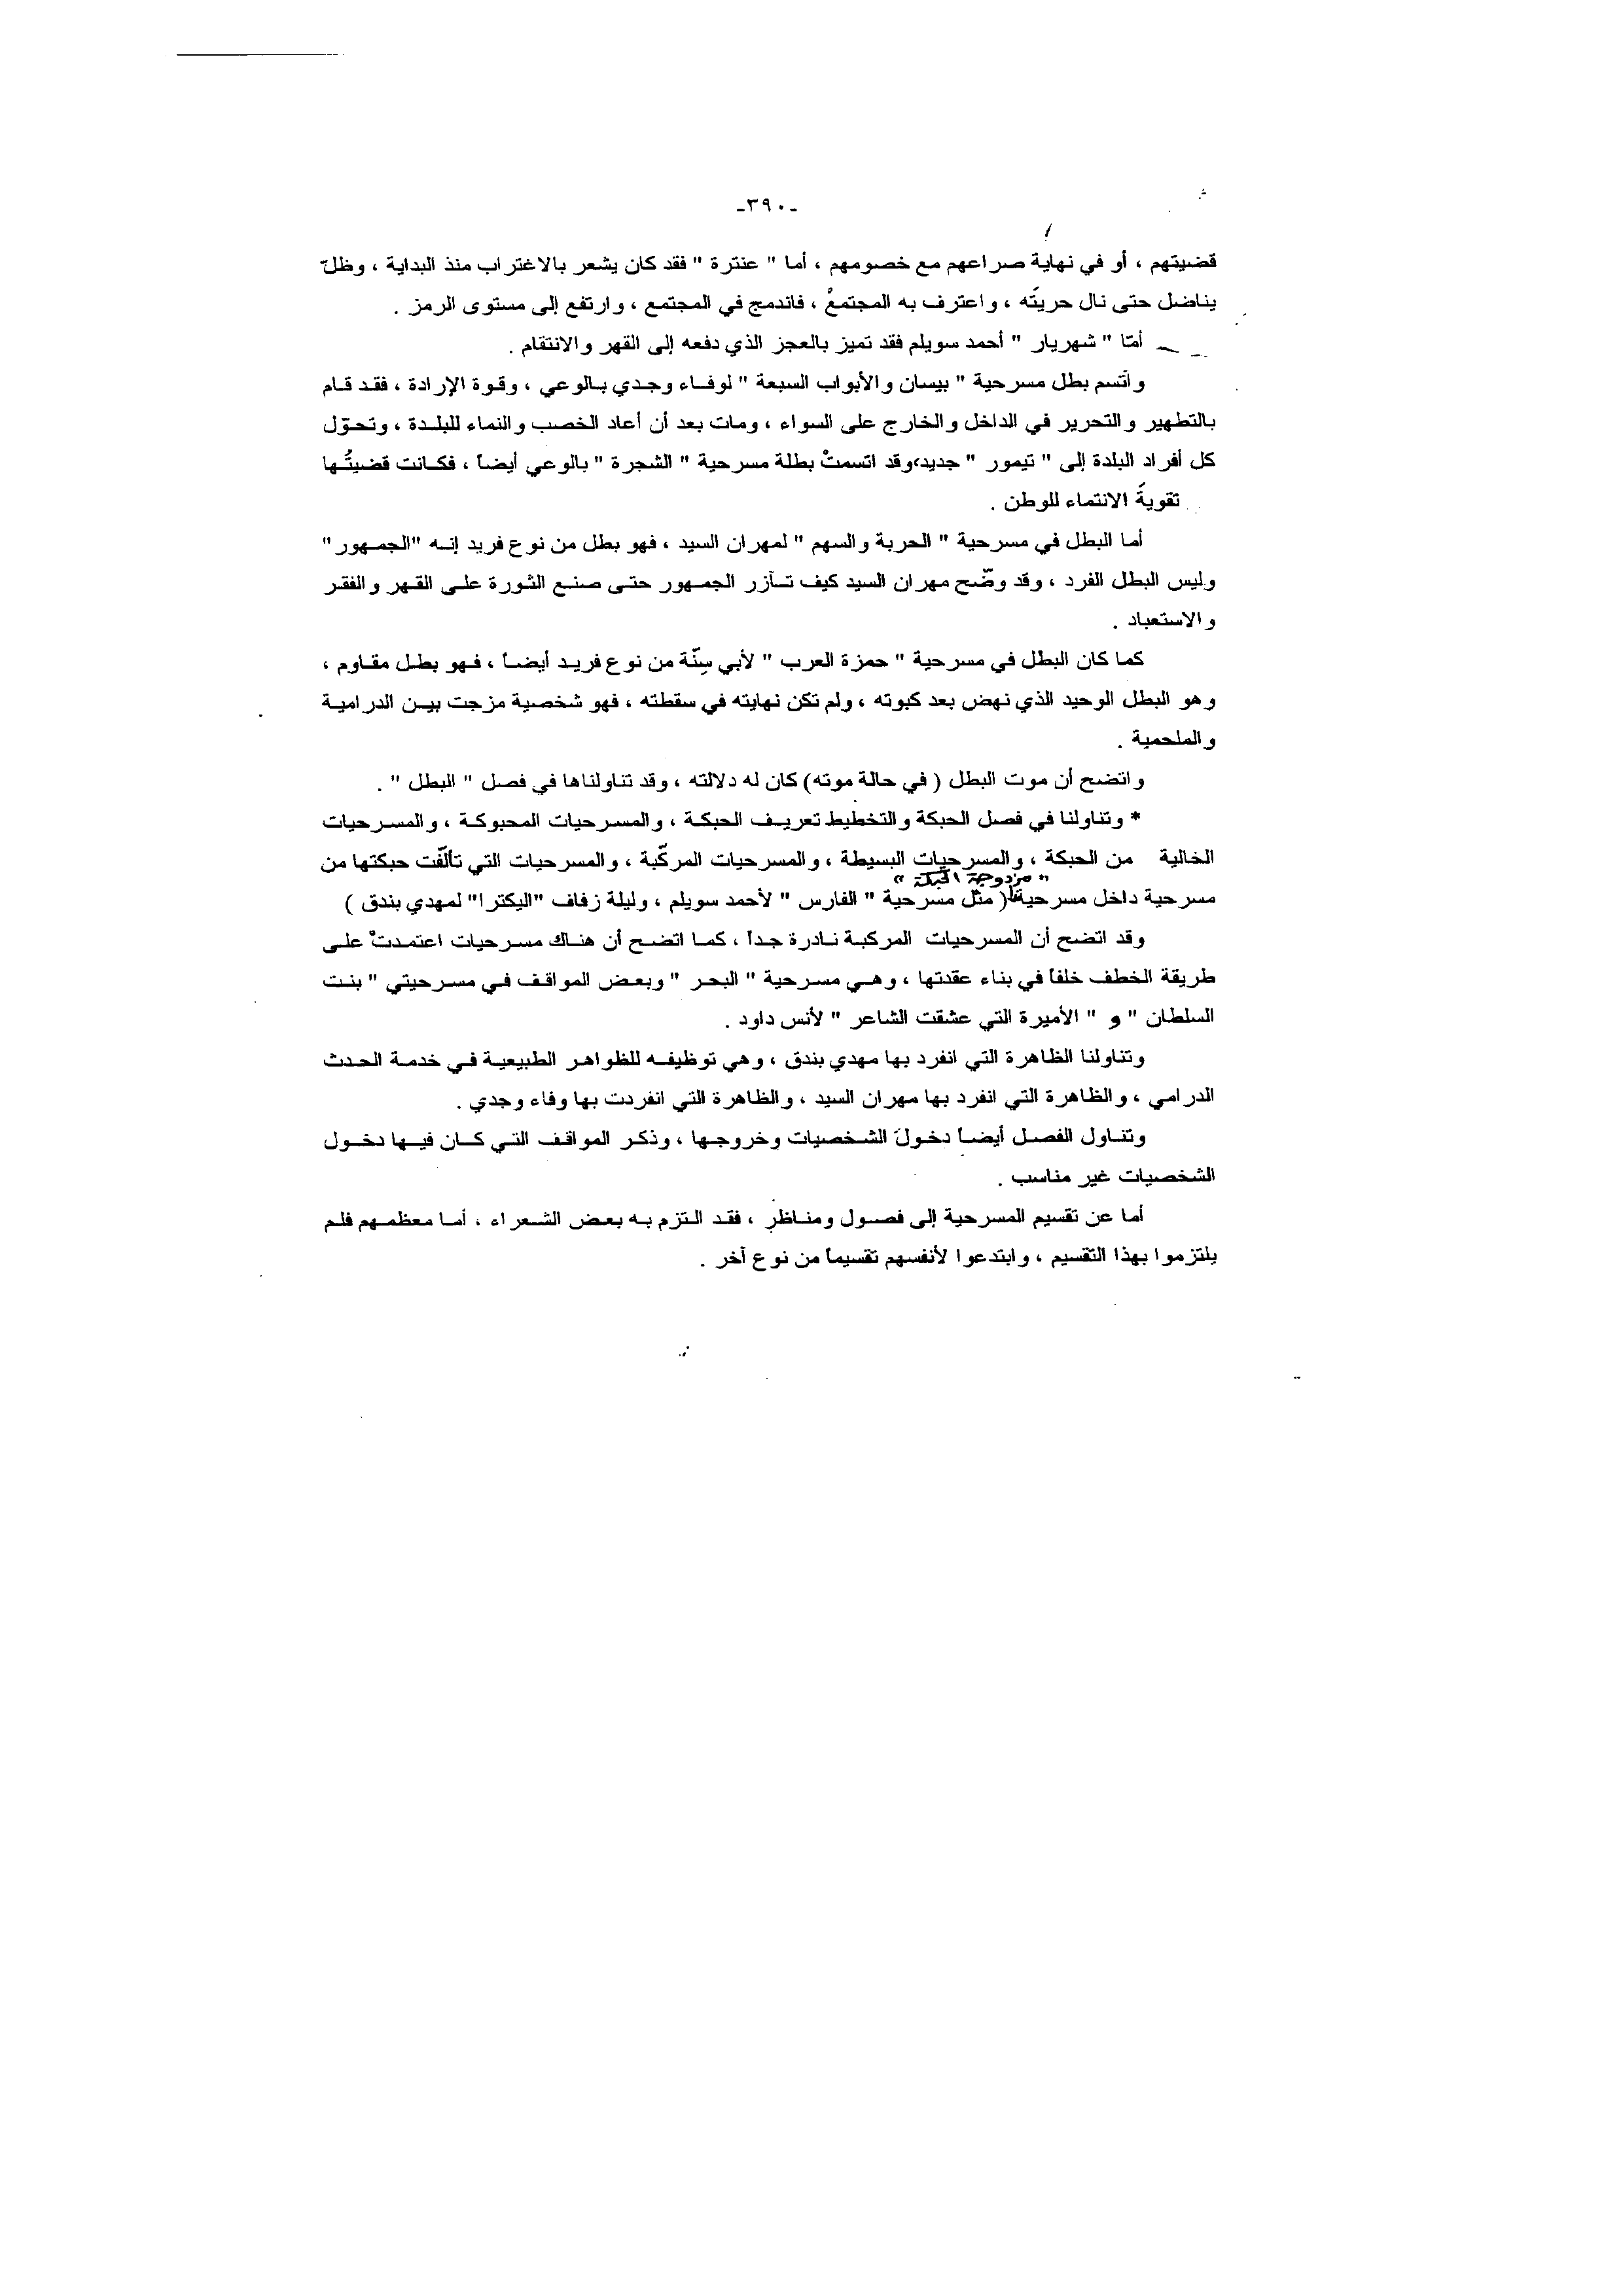 -٣٩٠-
قضيتهم ، أو في نهاية صراعهم مع خصومهم ، أما " عنترة " فقد كان يشعر بالاغتراب منذ البداية ، وظلّ
يناضل حتى نال حريتَه ، واعترف به المجتمعُ ، فاندمج في المجتمع ، وارتفع إلى مستوى الرمز .
أمّا " شهريار " أحمد سويلم فقد تميز بالعجز الذي دفعه إلى القهر والانتقام .
واتَّسم بطل مسرحية " بيسان والأبواب السبعة " لوفاء وجدي بالوعي ، وقوة الإرادة ، فقد قام
بالتطهير والتحرير في الداخل والخارج على السواء ، ومات بعد أن أعاد الخصب والنماء للبلدة ، وتحوّل
كل أفراد البلدة إلى " تيمور " جديد،وقد اتسمتْ بطلة مسرحية " الشجرة " بالوعي أيضاً ، فكانت قضيتُها
تقويةَ الانتماء للوطن .
أما البطل في مسرحية " الحربة والسهم " لمهران السيد ، فهو بطل من نوع فريد إنه "الجمهور"
وليس البطل الفرد ، وقد وضّح مهران السيد كيف تآزر الجمهور حتى صنع الثورة على القهر والفقر
والاستعباد .
كما كان البطل في مسرحية " حمزة العرب " لأبي سِنّة من نوع فريد أيضاً ، فهو بطل مقاوم ،
وهو البطل الوحيد الذي نهض بعد كبوته ، ولم تكن نهايته في سقطته ، فهو شخصية مزجت بين الدرامية
والملحمية .
واتضح أن موت البطل ( في حالة موته) كان له دلالته ، وقد تناولناها في فصل " البطل " .
* وتناولنا في فصل الحبكة والتخطيط تعريف الحبكة ، والمسرحيات المحبوكة ، والمسرحيات
الخالية من الحبكة ، والمسرحيات البسيطة ، والمسرحيات المركّبة ، والمسرحيات التي تألّفت حبكتها من
" مزدوجة الحبكة "
مسرحية داخل مسرحية ( مثل مسرحية " الفارس " لأحمد سويلم ، وليلة زفاف "اليكترا" لمهدي بندق )
وقد اتضح أن المسرحيات المركبة نادرة جداً ، كما اتضح أن هناك مسرحيات اعتمدتْ على
طريقة الخطف خلفاً في بناء عقدتها ، وهي مسرحية " البحر " وبعض المواقف في مسرحيتي " بنت
السلطان " و " الأميرة التي عشقت الشاعر " لأنس داود .
وتناولنا الظاهرة التي انفرد بها مهدي بندق ، وهي توظيفه للظواهر الطبيعية في خدمة الحدث
الدرامي ، والظاهرة التي انفرد بها مهران السيد ، والظاهرة التي انفردت بها وفاء وجدي .
وتناول الفصل أيضاً دخولَ الشخصيات وخروجها ، وذكر المواقف التي كان فيها دخول
الشخصيات غير مناسب .
أما عن تقسيم المسرحية إلى فصول ومناظر ، فقد التزم به بعض الشعراء ، أما معظمهم فلم
يلتزموا بهذا التقسيم ، وابتدعوا لأنفسهم تقسيماً من نوع آخر .